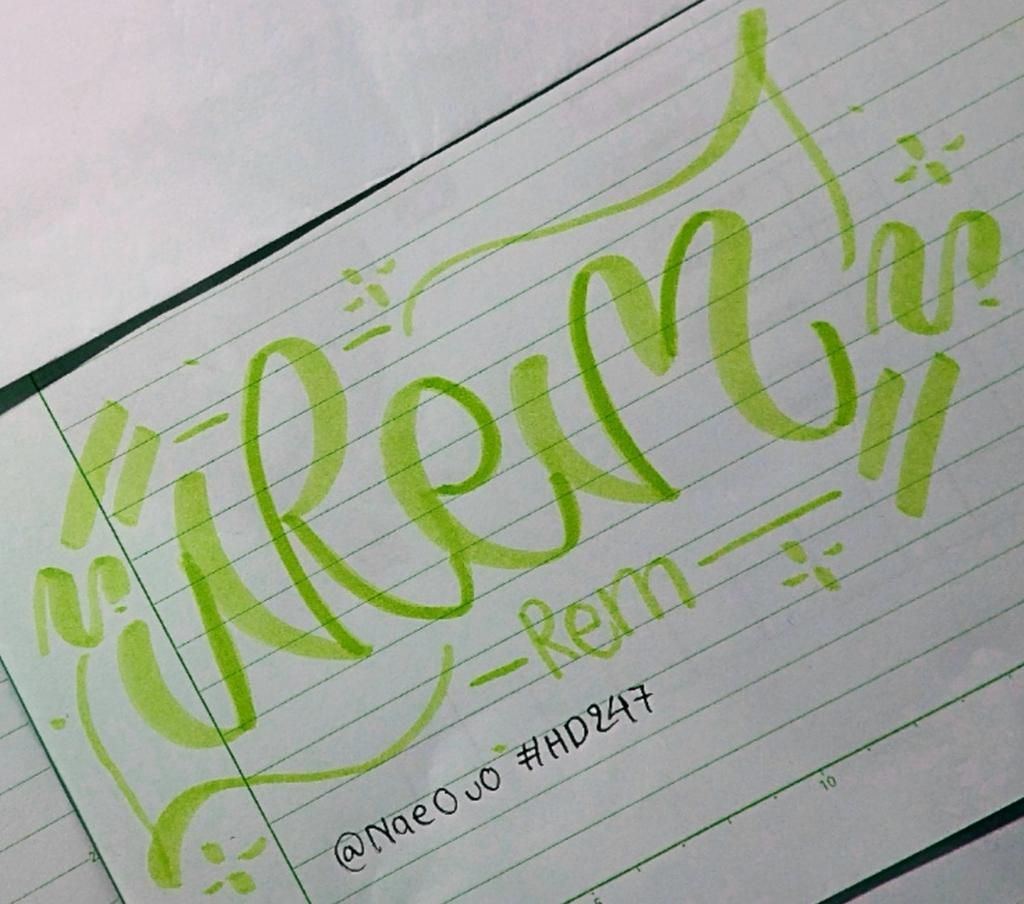 Rem
- Rem -
@NaeOuO #HD247
10